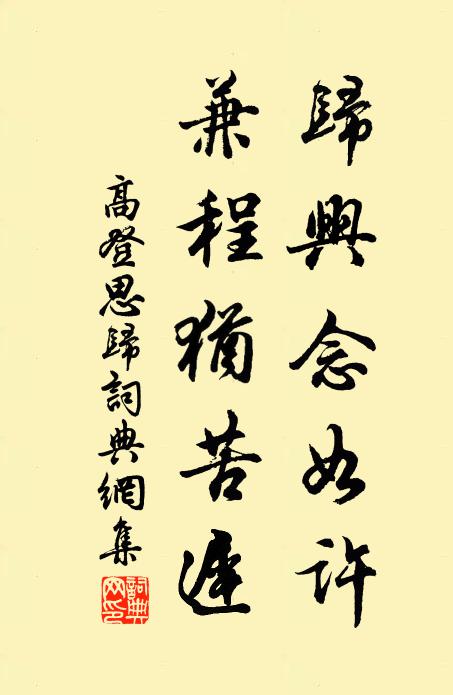 歸興念如許
兼程猶苦遲
高登思歸詞典網集
詞典网印